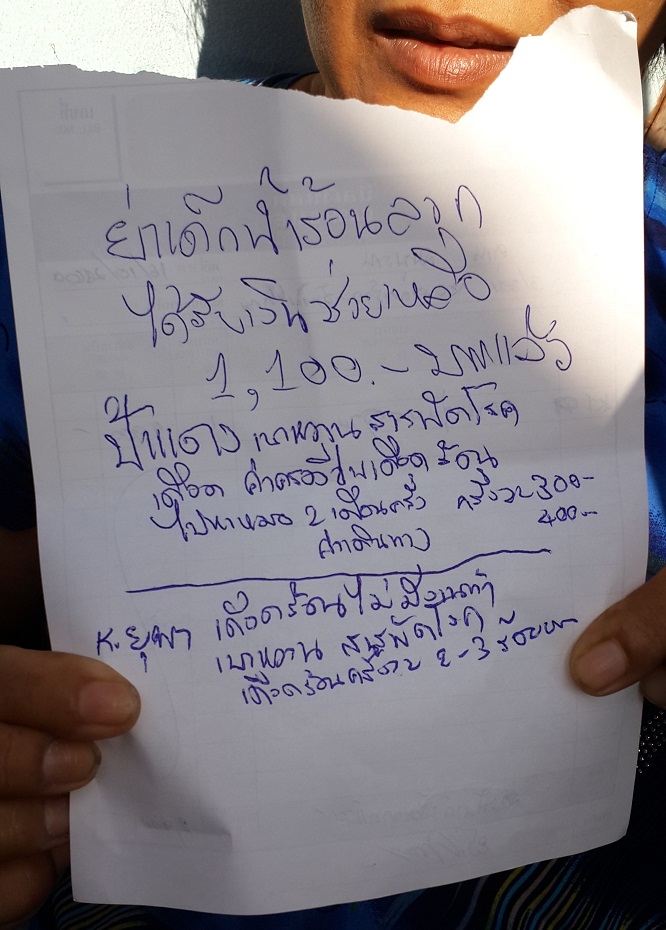 ย่าเด็กน้ำร้อนลวก
ได้รับเงินช่วยเหลือ
1,100.- บาทแล้ว
ป้าแดง เบาหวาน สารพัดโรค
เดือด ค่าครองชีพเดือดร้อน
ไปหาหมอ 2 เดือนครั้ง ครั้งละ 300-
400-
ค่าเดินทาง
K. ยุพา เดือดร้อนไม่มีงานทำ
เบาหวาน สารพัดโรค
เดือดร้อนครั้งละ 2-3 ร้อยบาท
16/10/2560